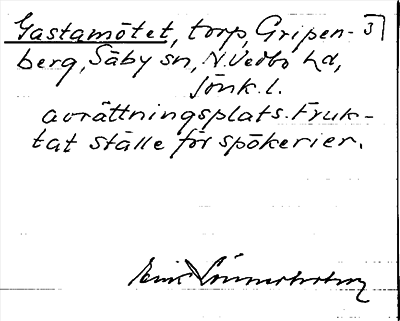 Gastamötet, torp, Gripen- 3
berg, Säby sn, N. Vedbo hd,
Jönk. l.
avrättningsplats. Fruk-
tat ställe för spökerier.